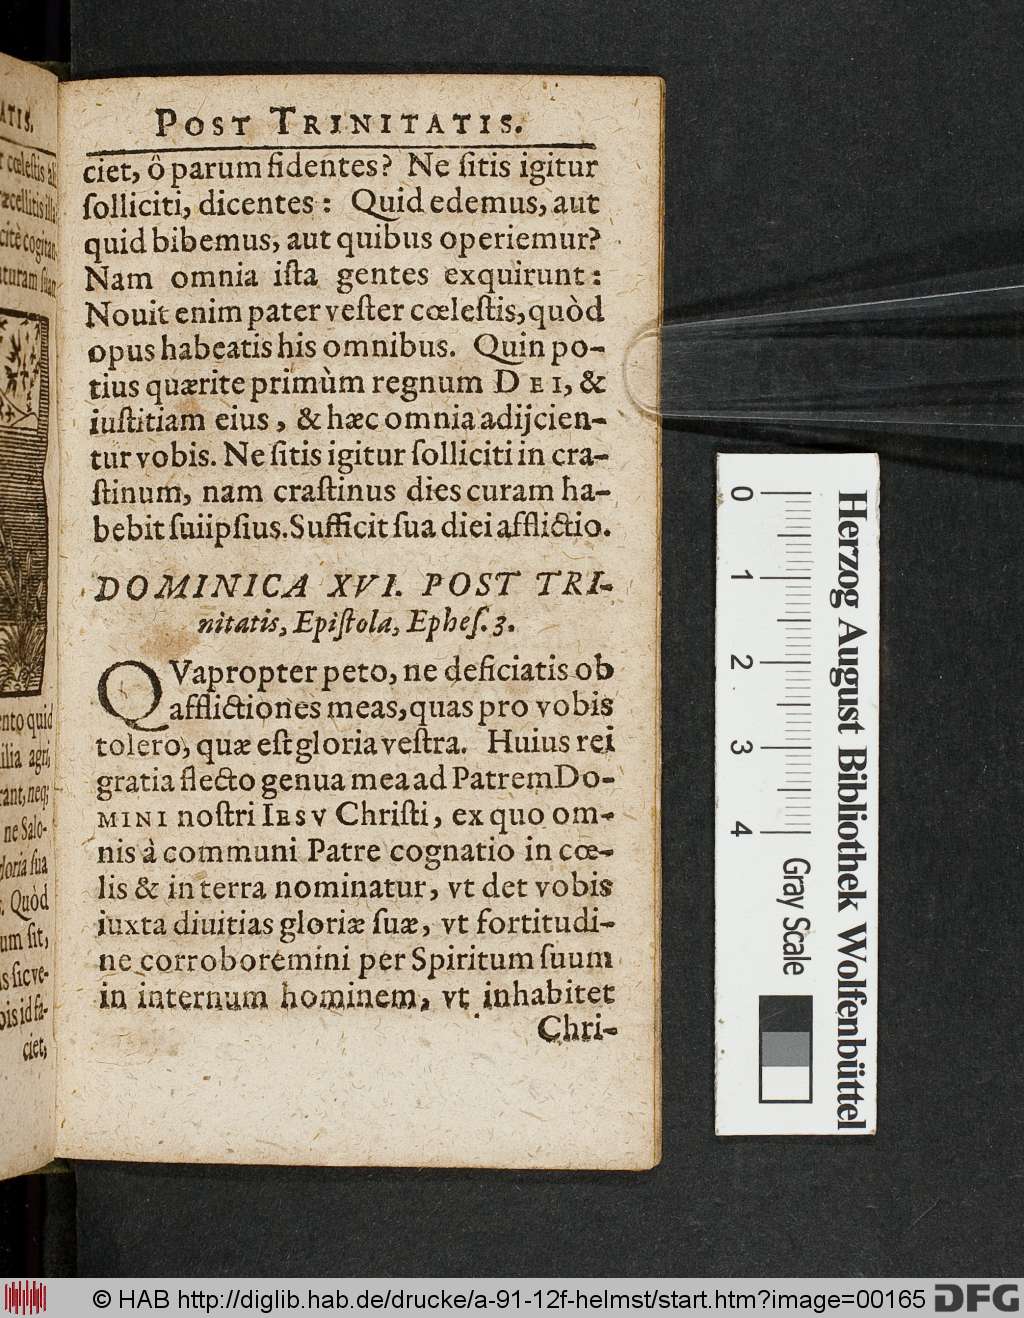 POST TRINITATIS.
ciet, ô parum fidentes? Ne ſitis igitur
ſolliciti, dicentes: Quid edemus, aut
quid bibemus, aut quibus operiemur?
Nam omnia iſta gentes exquirunt:
Nouit enim pater veſter cœleſtis, quòd
opus habeatis his omnibus. Quin po-
tius quærite primùm regnum DEI, &
iuſtitiam eius, & hæc omnia adijcien-
tur vobis. Ne ſitis igitur ſolliciti in cra-
ſtinum, nam craſtinus dies curam ha-
bebit ſui ipſius. Sufficit ſua diei afflictio.
DOMINICA XVI. POST TRI-
nitatis, Epiſtola, Epheſ. 3.
QVapropter peto, ne deficiatis ob
afflictiones meas, quas pro vobis
tolero, quæ eſt gloria veſtra. Huius rei
gratia flecto genua mea ad Patrem DO-
MINI noſtri IESV Chriſti, ex quo om-
nis à communi Patre cognatio in cœ-
lis & in terra nominatur, vt det vobis
iuxta diuitias gloriæ ſuæ, vt fortitudi-
ne corroboremini per Spiritum ſuum
in internum hominem, vt inhabitet
Chri-
ATIS.
nto quid
ilia agri,
rant, neq;
ne Salo-
gloria ſua
Quòd
um ſit,
s ſic ve-
bis id fa-
ciet,
0
1
2
3
4
Gray Scale
Herzog August Bibliothek Wolfenbüttel
© HAB http://diglib.hab.de/drucke/a-91-12f-helmst/start.htm?image=00165
DFG